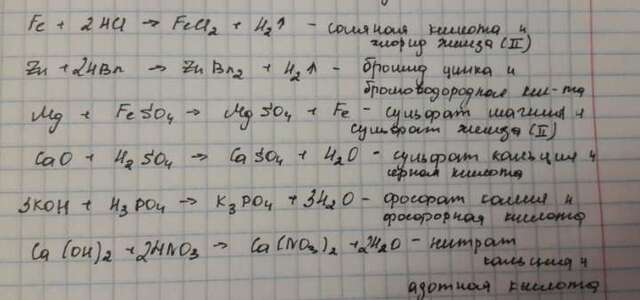 Fe + 2HCl → FeCl₂ + H₂↑ - соляная кислота и
хлорид железа (II)
Zn + 2HBr → ZnBr₂ + H₂↑ - бромид цинка и
бромоводородная кис-та
Mg + FeSO₄ → MgSO₄ + Fe - сульфат магния и
сульфат железа (II)
CaO + H₂SO₄ → CaSO₄ + H₂O - сульфат кальция и
серная кислота
3KOH + H₃PO₄ → K₃PO₄ + 3H₂O - фосфат калия и
фосфорная кислота
Ca(OH)₂ + 2HNO₃ → Ca(NO₃)₂ + 2H₂O - нитрат
кальция и
азотная кислота